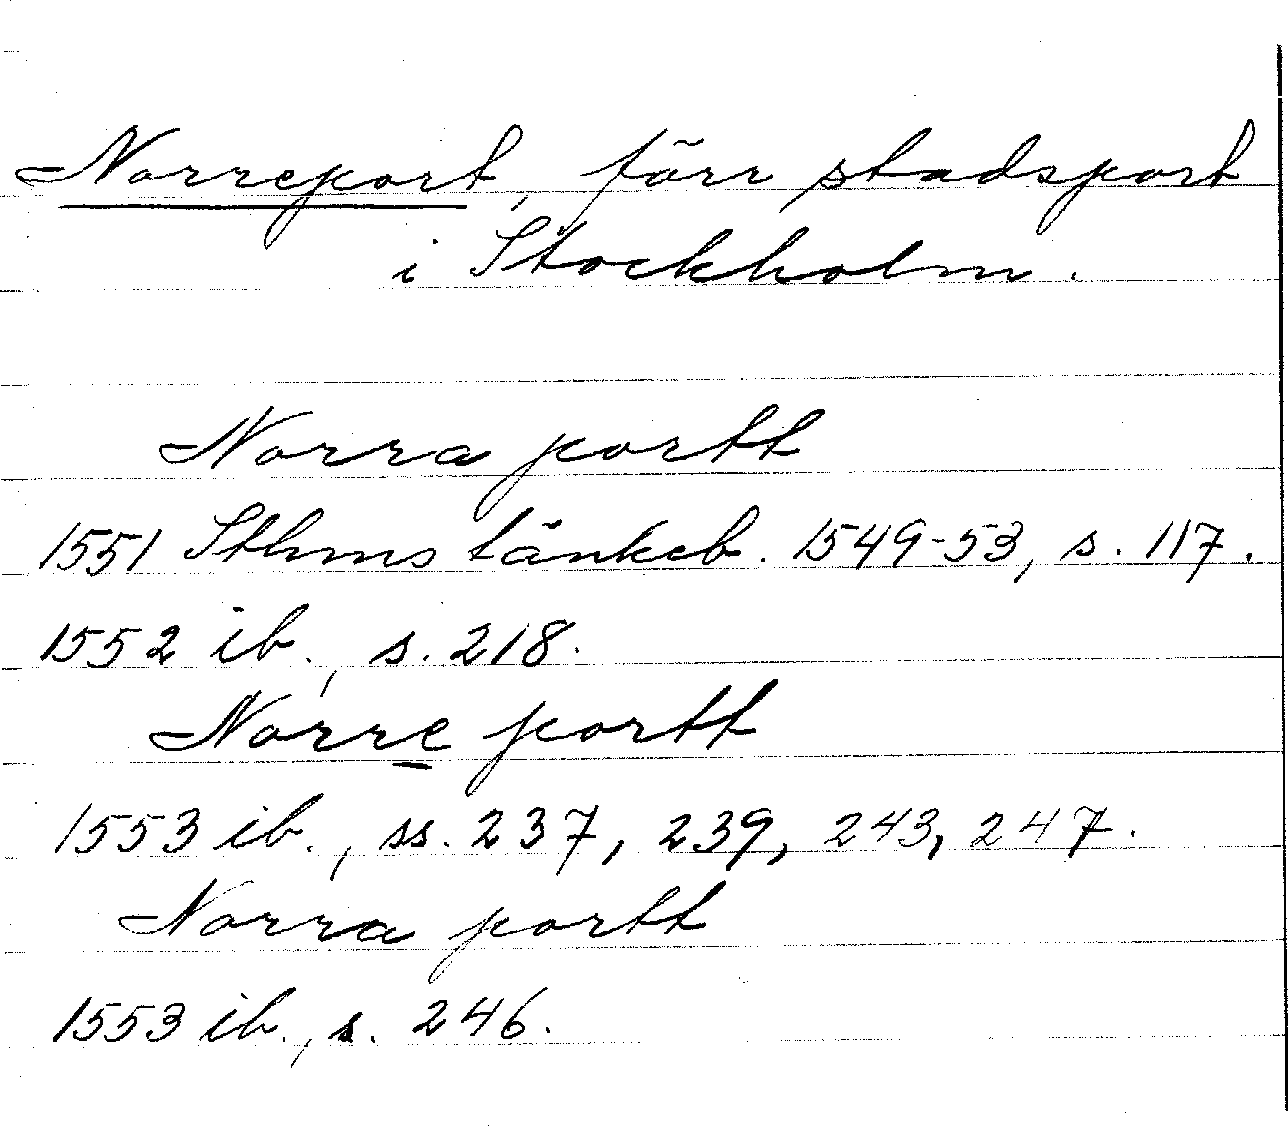 Norreport, förr stadsport
i Stockholm.
Norra portt
1551 Sthms tänkeb. 1549-53, s. 117.
1552 ib., s. 218.
Norre portt
1553 ib., ss. 237, 239, 243, 247.
Norra portt
1553 ib., s. 246.